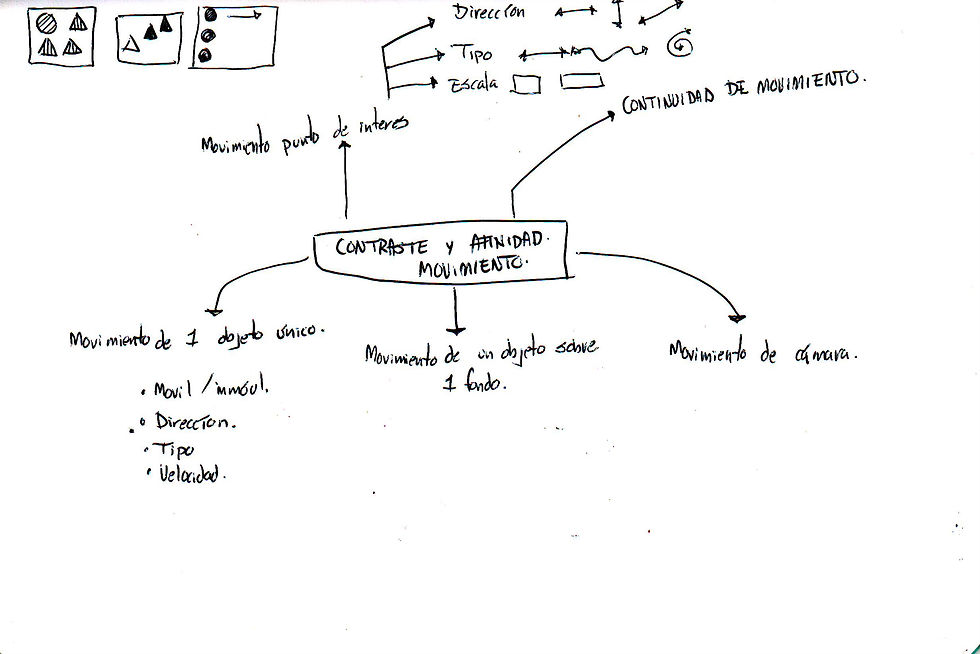 Dirección
Tipo
Escala
CONTINUIDAD DE MOVIMIENTO.
Movimiento punto de interes
CONTRASTE Y AFINIDAD.
MOVIMIENTO.
Movimiento de 1 objeto único.
Movimiento de un objeto sobre
1 fondo.
Movimiento de cámara.
• Movil / inmóvil.
• Direccion.
• Tipo
• Velocidad.